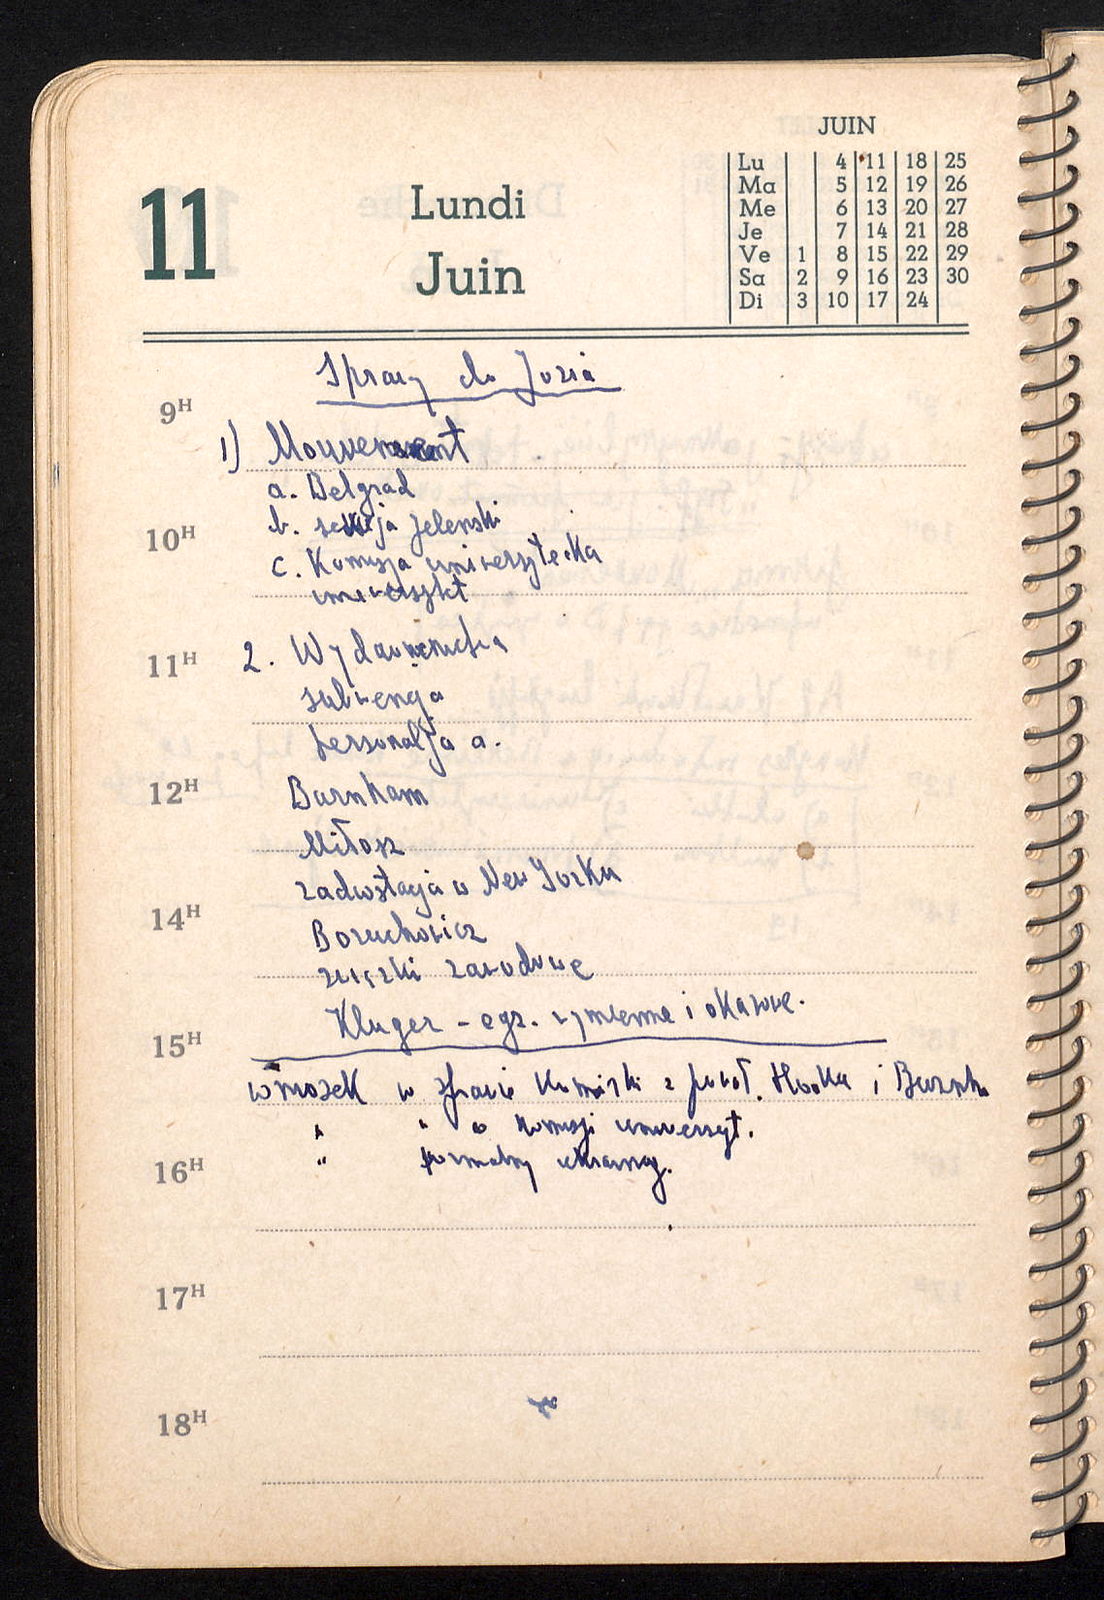 JUIN
Lu 4 11 18 25
Ma 5 12 19 26
Me 6 13 20 27
Je 7 14 21 28
Ve 1 8 15 22 29
Sa 2 9 16 23 30
Di 3 10 17 24
11 Lundi
Juin
Sprawy do Józia
9H
1) Mouvement
a. Belgrad
10H b. sekcja Jelenski
c. Komisja uniwersytecka
uniwersytet
11H 2. Wydawnictwa
subwencja
personalja a.
12H Burnham
Miłosz
radiostacja w New Yorku
14H Boruchowicz
związki zawodowe
Kluger - egz. wymienne i okazowe.
15H
wniosek w sprawie Komisji z Hooka i Burnh
" " w Komisji uniwersyt.
16H "
17H
18H